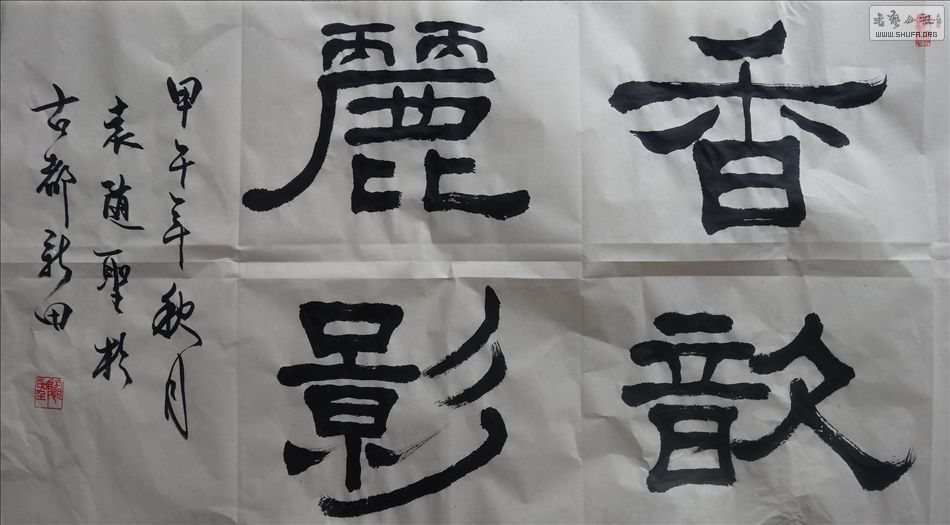 香歆
麗影
甲午年秋月
袁随聖於
古都新田
书艺公社
WWW.SHUFA.ORG